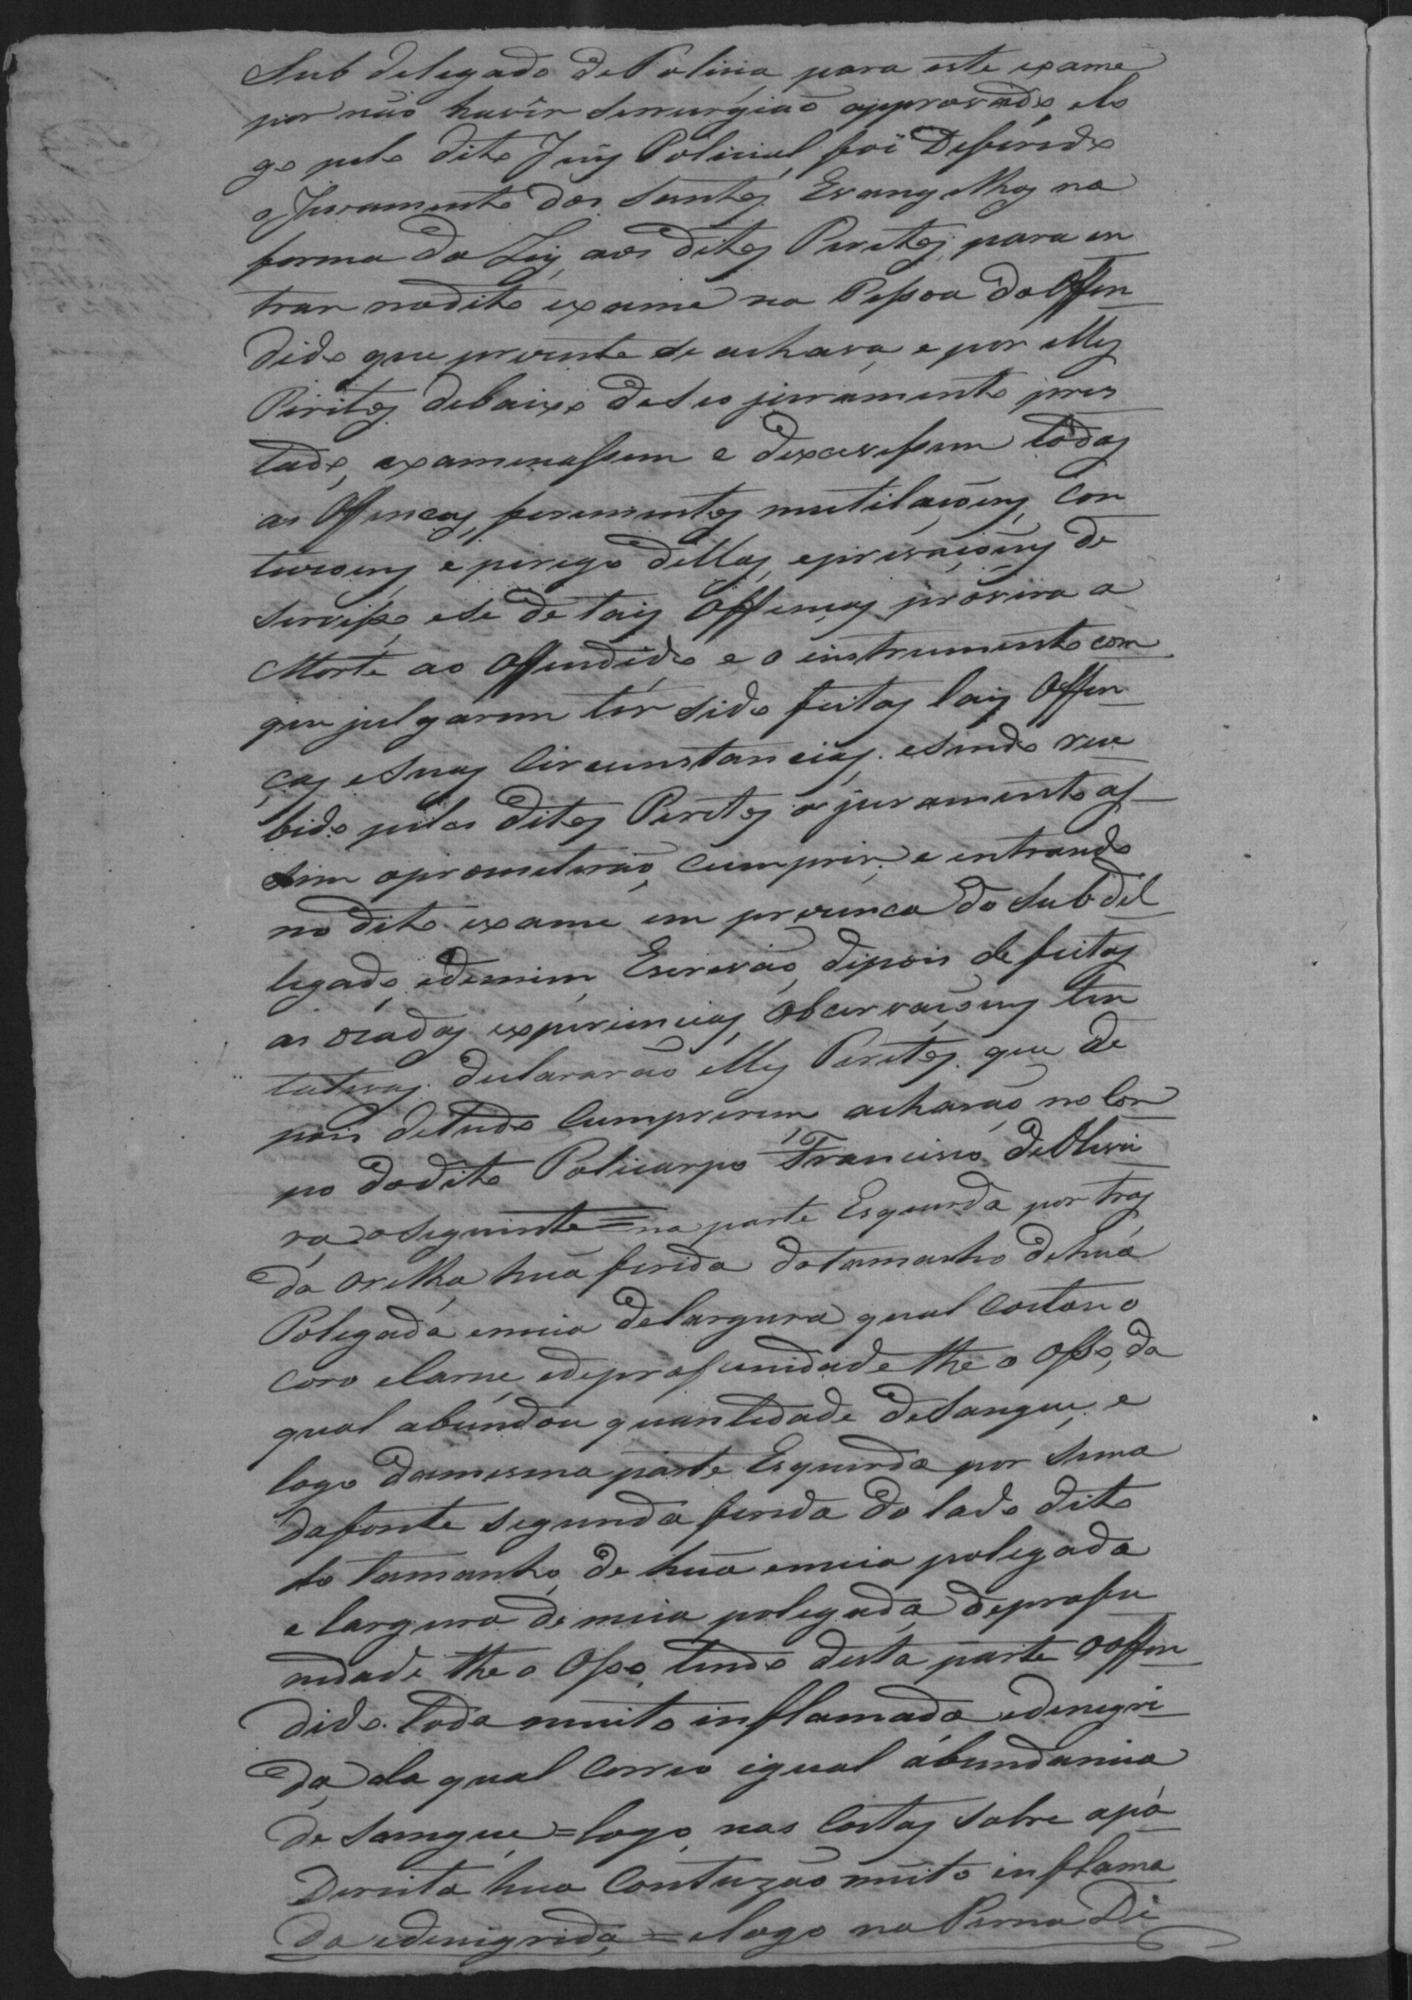 Sub delegado de Policia, para este exame
por não havêr Serrurgião approvado, elo
go pelo dito Juiz Policial, foi Deferido
o Juramento dos Santos Evangelhos na
forma da Ley, aos ditos Peritos, para en
trar nodito exame na Pessoa do Offen
dido que prezente se achava, e por elles
Peritos debaixo deseo jurramento pres
tado, examenassem e descrevessem todas
as Offencas, ferimentos mutilaçoens, Con
tuzoens, e perigo dellas, eprivaçoens de
Servisso, ese de tais Offenças próvira a
Morte ao Offendido e o instrumento com
que julgarem têr sido feitas tais Offen
ças, e Suas Circunstancias, esendo rece
bido pelos ditos Peritos o juramento as
sim oprometerão, Cumprir, e entrando
no dito exame em prezenca do Sub del
legado, edemim Escrevão, dipois de feitas
as ozadas expiriencias, Observaçoens ten
tativas, declararão elles Peritos, que de
pois de tudo Cumprirem acharão no Cor
po do dito Policarpo Francisco de Olivei
ra o Seguinte = na parte Esquerda por tras
da orelha, huã ferida do tamanho de huã
Polegada emeia de largura qual Cortou o
Coro eCarne, edeprofunidade the o Osso, da
qual abundou quantidade deSangue, e
logo damesma parte Esquerda por Sima
dafonte segunda ferida do lado dito
do tamanho, de huã emeia polegada
e largura de meia polegada, deprofu
nidade the o Osso, tendo desta parte o offen
dido. toda muito inflamada edenegri
da, da qual Correo igual abundancia
de Sangue, = logo, nas Costas Sobre apá
Dereita hua Contuzão muito inflama
da edenigrida, = elogo na Perna Di